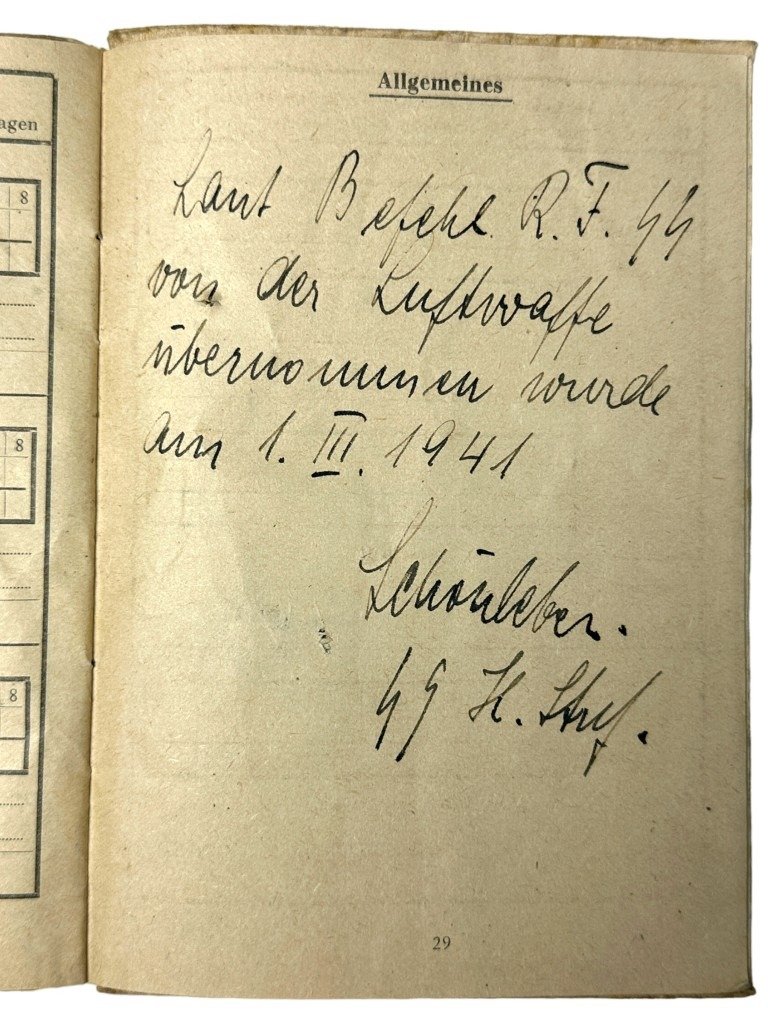 agen
8
8
8
Allgemeines
Laut Befehl R.F.SS
von der Luftwaffe
übernommen wurde
am 1. III. 1941
Schönleber.
SS H. Stuf.
29